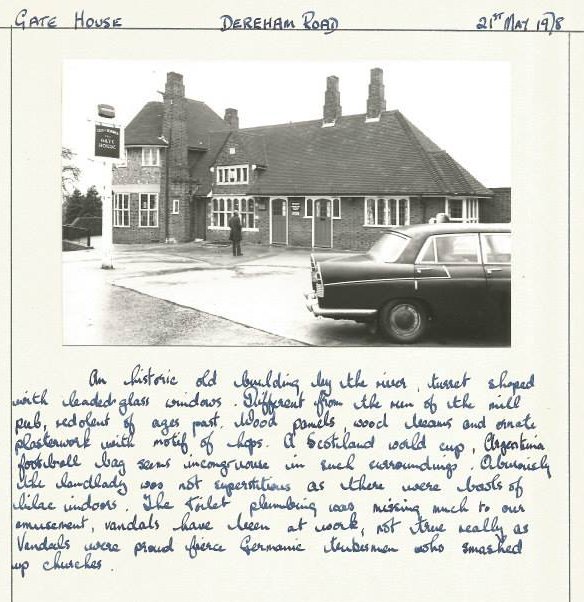 GATE HOUSE DEREHAM ROAD 21ST MAY 1978
GATE
HOUSE
An historic old building by the river, turret shaped
with leaded glass windows. Different from the run of the mill
pub, redolent of ages past. Wood panels, wood beams and ornate
plasterwork with motif of hops. A Scotland world cup, Argentina
football bag seems incongruouse in such surroundings. Obviously
the landlady was not superstitious as there were bowls of
lilac indoors. The toilet plumbing was missing much to our
amusement, vandals have been at work, not true really as
Vandals were proud fierce Germanic tribesmen who smashed
up churches.